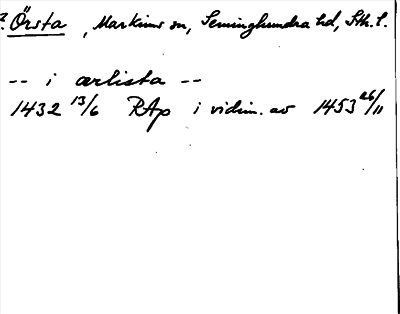 ? Örsta, Markims sn, Seminghundra hd, Sth. l.
-- i ærlista --
1432 13/6 RAp i vidim. av 1453 26/11